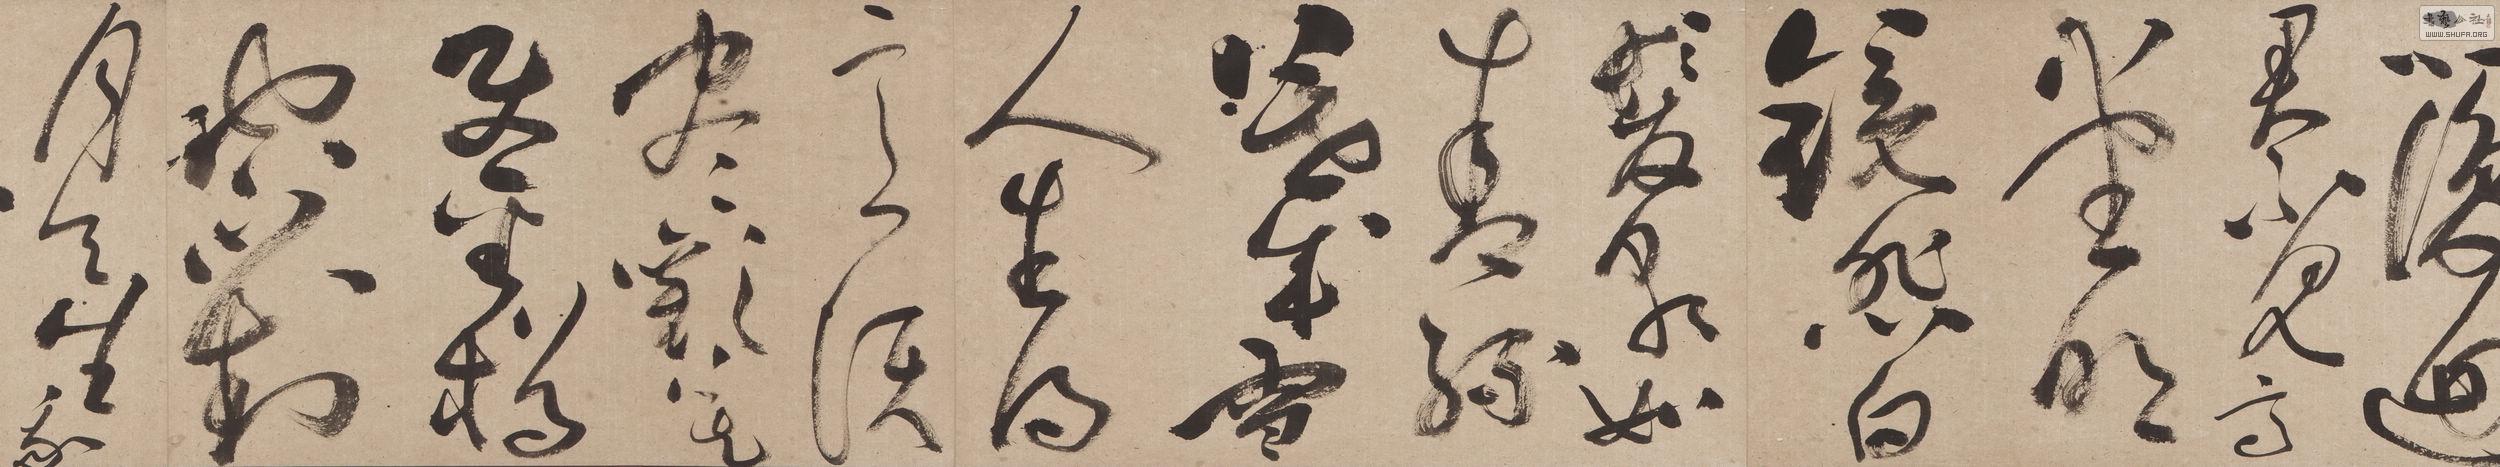 復迴
君不見高
堂明
鏡悲白
髮朝如
青絲
暮成雪
人生得
意須
盡歡莫
使金樽
空對
月天生我
WWW.SHUFA.ORG